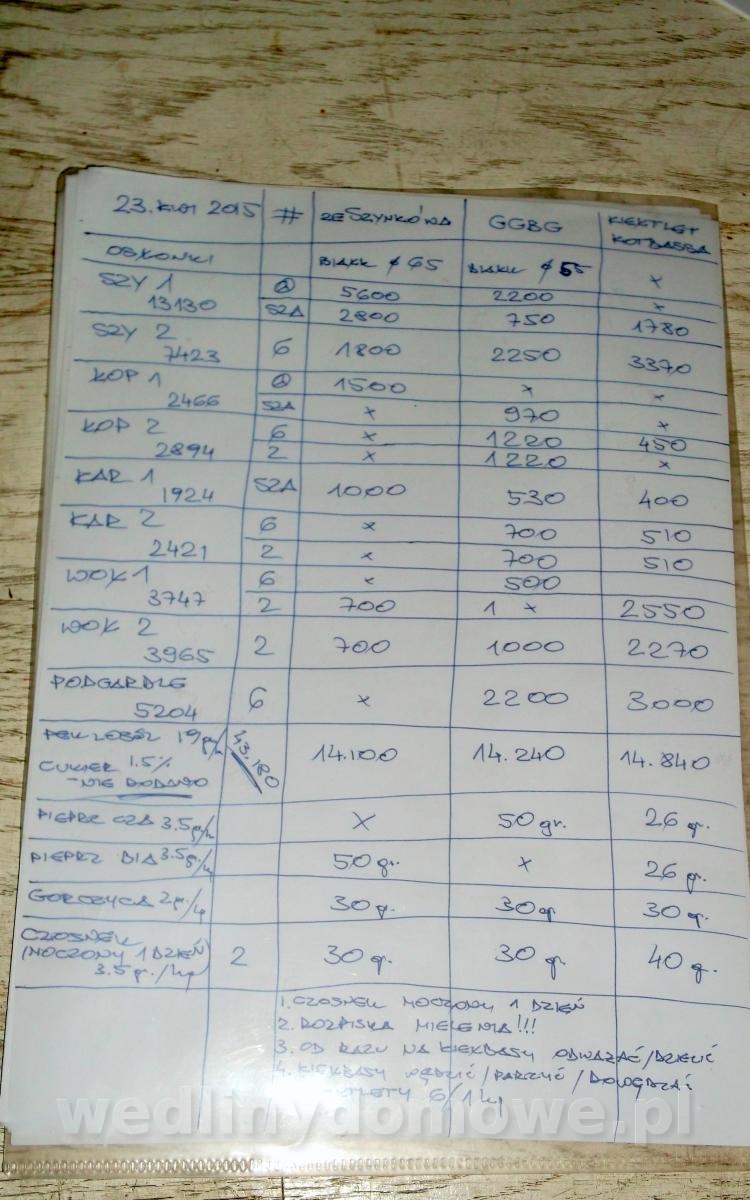 23. KWI 2015 # ZESZYNKÓWA GGBG KIEKTLET KOTBASSA
OSŁONKI BIAŁK ϕ 65 BIAŁK ϕ 55 x
SZY 1 5600 2200 x
13130 SZA 2800 750 1780
SZY 2
7423 6 1800 2250 3370
KOP 1 1500 x x
2466 SZA x 970 x
KOP 2 6 x 1220 450
2894 2 x 1220 x
KAR 1
1924 SZA 1000 530 400
KAR 2 6 x 700 510
2421 2 x 700 510
WOŁ 1 6 x 500
3747 2 700 1 x 2550
WOŁ 2
3965 2 700 1000 2270
PODGARDLE
5204 6 x 2200 3000
PEKLOSÓL 19 gr/kg 43.180 14.100 14.240 14.840
CUKIER 1.5%
- NIE DODANO
PIEPRZ CZA 3.5 gr/kg X 50 gr. 26 gr.
PIEPRZ BIA 3.5 gr/kg 50 gr. x 26 gr.
GORCZYCA 2 gr/kg 30 gr. 30 gr 30 gr.
CZOSNEK
(MOCZONY 1 DZIEŃ) 2 30 gr. 30 gr. 40 g.
3.5 gr./kg
1. CZOSNEK MOCZONY 1 DZIEŃ
2. ROZPISKA MIELENIA!!!
3. OD RAZU NA KIEŁBASY ODWAŻAĆ/DZIELIĆ
4. KIEŁBASY WĘDZIĆ/PARZYĆ/DOWĘDZAĆ
KOTLETY 6/1 kg
wedlinydomowe.pl